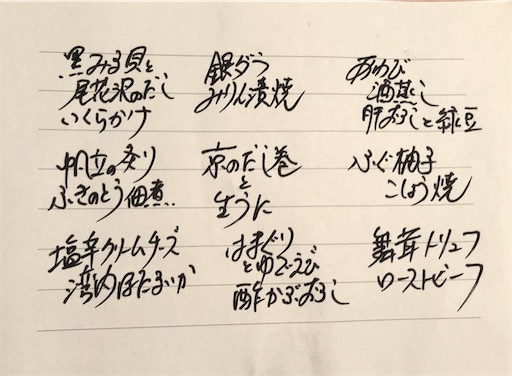 黒みる貝と
尾花沢のだし
いくらかけ
銀ダラ
みりん漬焼
あわび
酒蒸し
肝おろしと緑豆
帆立の炙り
ふきのとう佃煮
京のだし巻
と
生うに
ふぐ柚子
こしょう焼
塩辛クリームチーズ
湾内ほたるいか
はまぐり
とゆでえび
酢かぶおろし
舞茸トリュフ
ローストビーフ